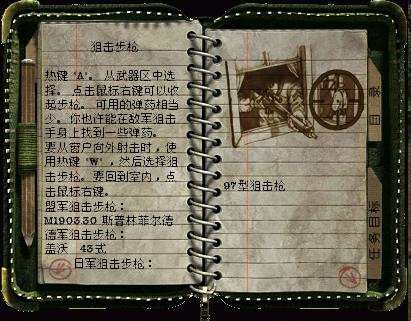 狙击步枪
热键 'A'。 从武器区中选
择。 点击鼠标右键可以收
起步枪。 可用的弹药相当
少。你也许能在敌军狙击
手身上找到一些弹药。
要从窗户向外射击时，使
用热键 'W'，然后选择狙
击步枪。要回到室内，点
击鼠标右键。
盟军狙击步枪：
M1903.30 斯普林菲尔德
德军狙击步枪：
盖沃 43式
日军狙击步枪：
97型狙击枪
目录
任务目标